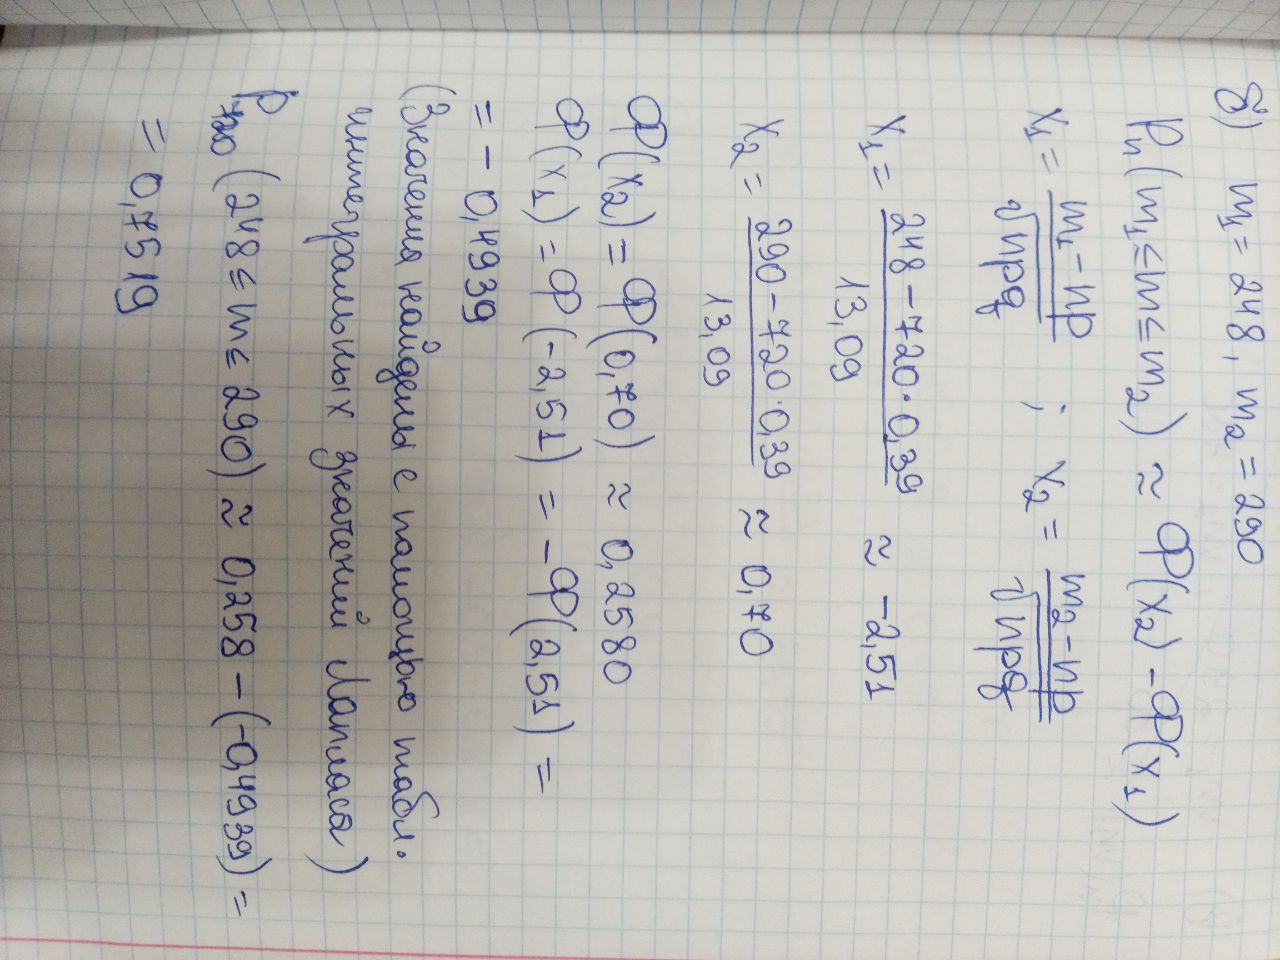 б) m₁ = 248, m₂ = 290
Pₙ(m₁ ≤ m ≤ m₂) ≈ Ф(x₂) - Ф(x₁)
x₁ = (m₁ - np)/√npq ; x₂ = (m₂ - np)/√npq
x₁ = (248 - 720 · 0,39)/13,09 ≈ -2,51
x₂ = (290 - 720 · 0,39)/13,09 ≈ 0,70
Ф(x₂) = Ф(0,70) ≈ 0,2580
Ф(x₁) = Ф(-2,51) = -Ф(2,51) =
= - 0,4939
(Значения найдены с помощью табл.
интегральных значений Лапласа)
P₇₂₀(248 ≤ m ≤ 290) ≈ 0,258 - (-0,4939) =
= 0,7519